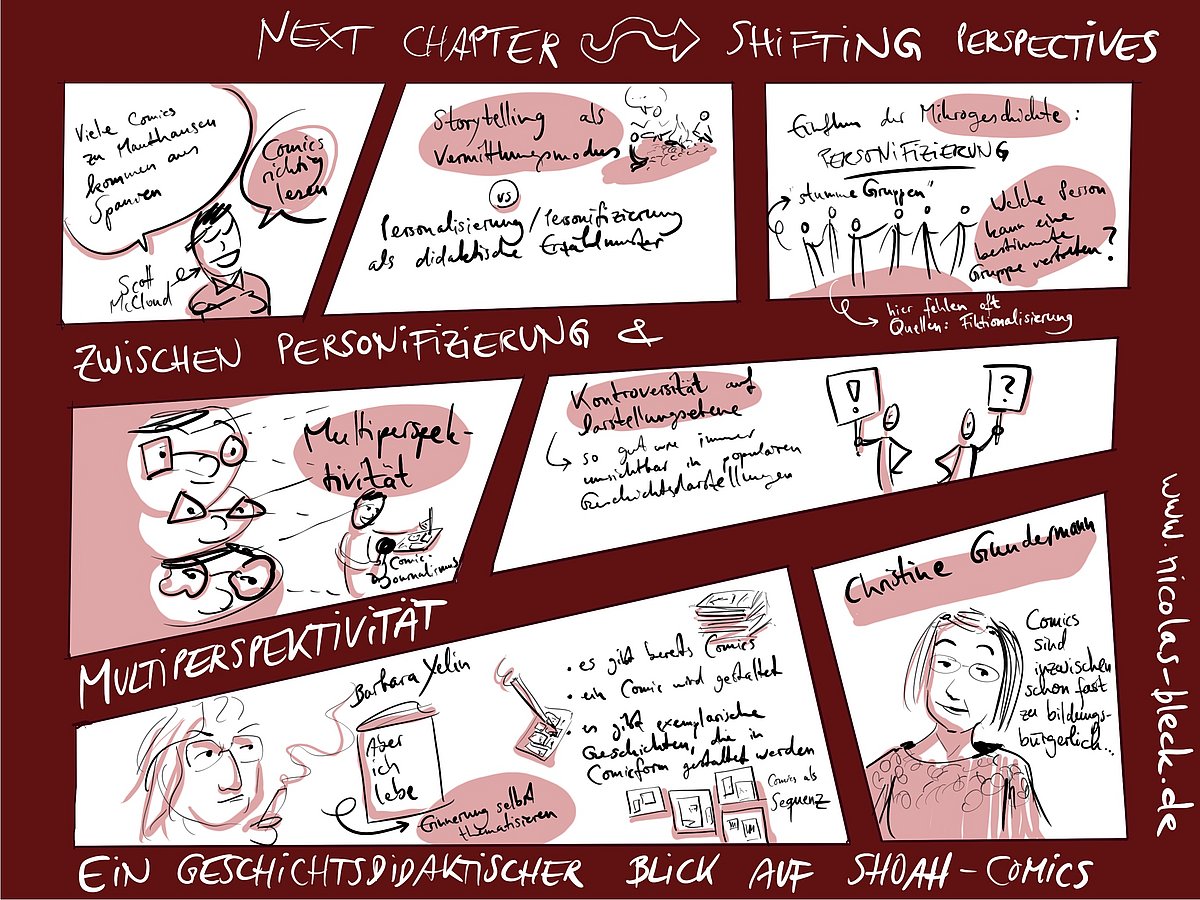 NEXT CHAPTER SHIFTING PERSPECTIVES
Viele Comics
zu Mauthausen
kommen aus
Spanien
Comics
richtig
lesen
Scott
McCloud
Storytelling als
Vermittlungsmodus
vs
Personalisierung/Personifizierung
als didaktische Erzählmuster
Einfluss der Mikrogeschichte:
PERSONIFIZIERUNG
"stumme Gruppen"
Welche Person
kann eine
bestimmte
Gruppe vertreten?
hier fehlen oft
Quellen: Fiktionalisierung
ZWISCHEN PERSONIFIZIERUNG &
Multiperspek-
tivität
Comic-
Journalismus
Kontroversität auf
Darstellungsebene
so gut wie immer
unsichtbar in populären
Geschichtsdarstellungen
!
?
MULTIPERSPEKTIVITÄT
Barbara Yelin
Aber
ich
lebe
Erinnerung selbst
thematisieren
• es gibt bereits Comics
• ein Comic wird gestaltet
• es gibt exemplarische
Geschichten, die in
Comicform gestaltet werden
Comics als
Sequenz
Christine Gundermann
Comics
sind
inzwischen
schon fast
zu bildungs-
bürgerlich...
www.nicolas-bleck.de
EIN GESCHICHTSDIDAKTISCHER BLICK AUF SHOAH-COMICS